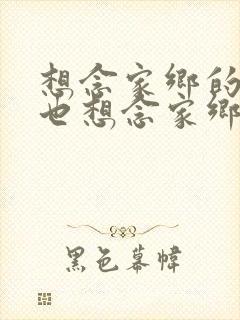 想念家乡的
也想念家乡
黑色幕帏